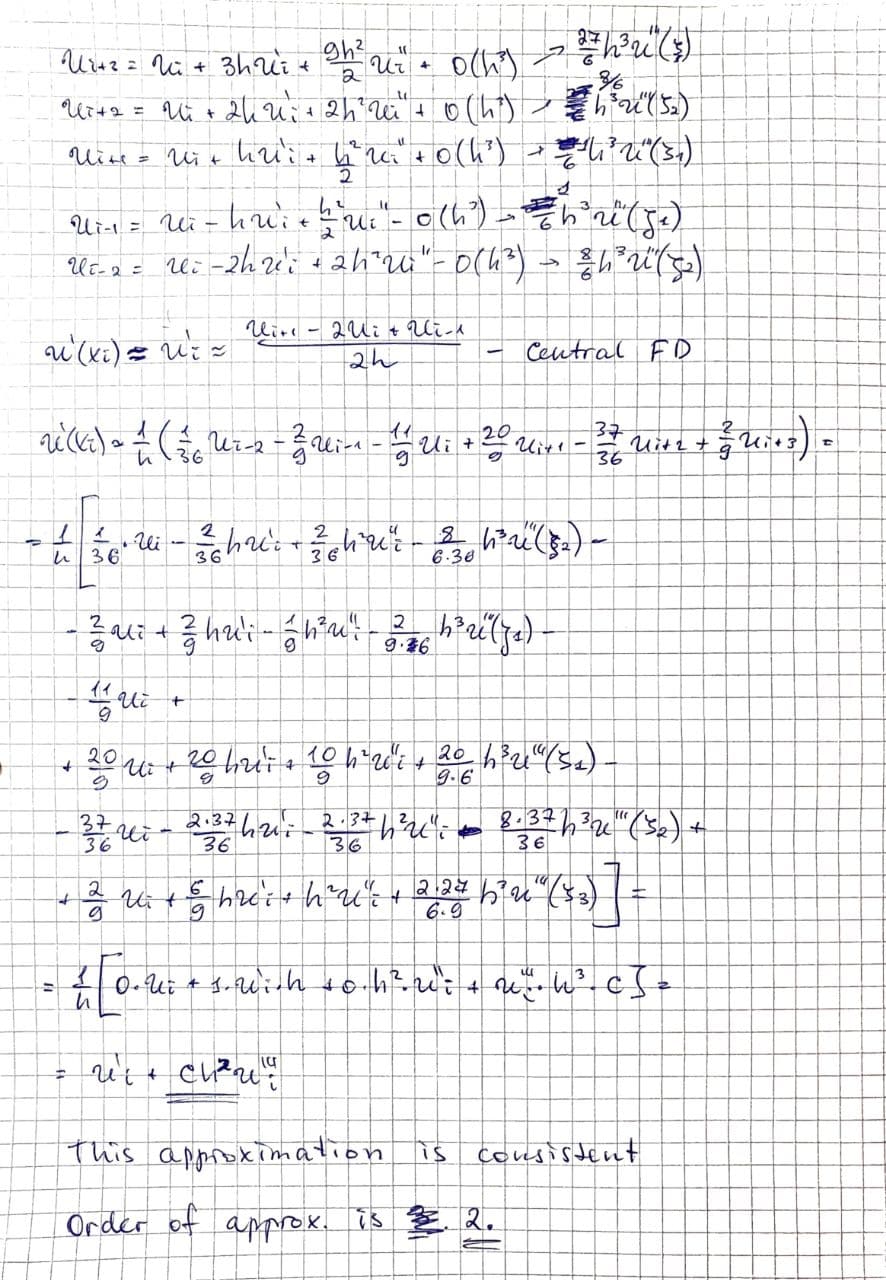 u_{i+3} = u_i + 3hu'_i + 9h²/2 u''_i + O(h³) → 27/6 h³u'''(ξ)
u_{i+2} = u_i + 2hu'_i + 2h²u''_i + O(h³) → 8/6 h³u'''(ξ₂)
u_{i+1} = u_i + hu'_i + h²/2 u''_i + O(h³) → 1/6 h³u'''(ξ₁)
u_{i-1} = u_i - hu'_i + h²/2 u''_i - O(h³) → 1/6 h³u'''(ζ₁)
u_{i-2} = u_i - 2hu'_i + 2h²u''_i - O(h³) → 8/6 h³u'''(ζ₂)
u'(x_i) = u'_i ≈ (u_{i+1} - 2u_i + u_{i-1})/2h - Central FD
u'(x_i) ≈ 1/h (1/36 u_{i-2} - 2/9 u_{i-1} - 11/9 u_i + 20/9 u_{i+1} - 37/36 u_{i+2} + 2/9 u_{i+3}) =
= 1/h [1/36 · u_i - 2/36 hu'_i + 2/36 h²u''_i - 8/6·36 h³u'''(ξ₂) -
- 2/9 u_i + 2/9 hu'_i - 1/9 h²u''_i - 2/9·6 h³u'''(ζ₁) -
- 11/9 u_i +
+ 20/9 u_i + 20/9 hu'_i + 10/9 h²u''_i + 20/9·6 h³u'''(ξ₁) -
- 37/36 u_i - 2·37/36 hu'_i - 2·37/36 h²u''_i - 8·37/36 h³u'''(ξ₂) +
+ 2/9 u_i + 6/9 hu'_i + h²u''_i + 2·27/6·9 h³u'''(ξ₃)] =
= 1/h [0·u_i + 1·u'_i·h + 0·h²·u''_i + u'''_i·h³·C] =
= u'_i + Ch²u'''_i
This approximation is consistent
Order of approx. is 2.